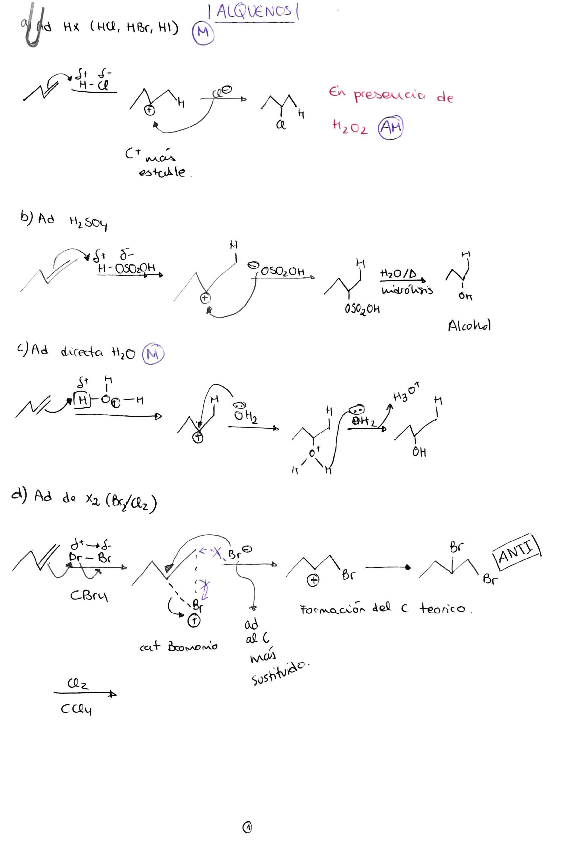 |ALQUENOS|
a) Ad HX (HCl, HBr, HI) M
δ+ δ-
H-Cl
H
⊕
Cl⊖
Cl
H
En presencia de
H2O2 AM
C+ más
estable.
b) Ad H2SO4
δ+ δ-
H-OSO2OH
H
⊕
⊖OSO2OH
H
OSO2OH
H2O/Δ
hidrólisis
H
OH
Alcohol
c) Ad directa H2O M
δ+ H
H-O-H
⊕
H
⊕
ÖH2
H
O+
H H
ÖH2
H3O+
H
OH
d) Ad de X2 (Br2/Cl2)
δ+→δ-
Br-Br
CBr4
x
Br⊖
x
Br
⊕
cat Bromonio
ad
al C
más
sustituido.
⊕
Br
Br
Br
ANTI
Formación del C teórico.
Cl2
CCl4